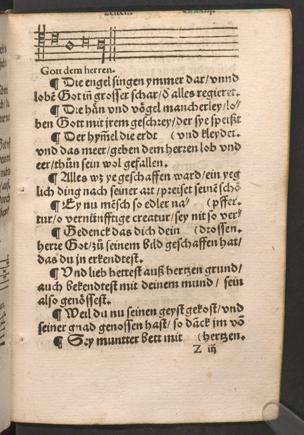 Gott dem herren.
¶ Die engel singen ymmer dar / vnnd
lobē Got in grosser schar / d̄ alles regieret.
¶ Die hän vnd vögel mancherley / lo⸗
ben Gott mit jrem geschrey / der sye speißt
¶ Der hymel die erdt (vnd kleydet.
vnd das meer / geben dem herzen lob vnd
eer / thün sein wol gefallen.
¶ Alles wz ye geschaffen ward / ein yeg
lich ding nach seiner art / preiset seinē schö
¶ Ey nu mēsch so edler na⸗ (pffer.
tur / o vernünfftige creatur / sey nit so ver⸗
¶ Gedenck das dich dein (drossen.
herre Got / zů seinem bild geschaffen hat /
das du jn erkendtest.
¶ Vnd lieb hettest auß hertzen grund /
auch bekendtest mit deinem mund / sein
also genössest.
¶ Weil du nu seinen geyst gekost / vnd
seiner gnad genossen hast / so dāck jm vō
¶ Sey muntter bett mit (hertzen.
Z iij